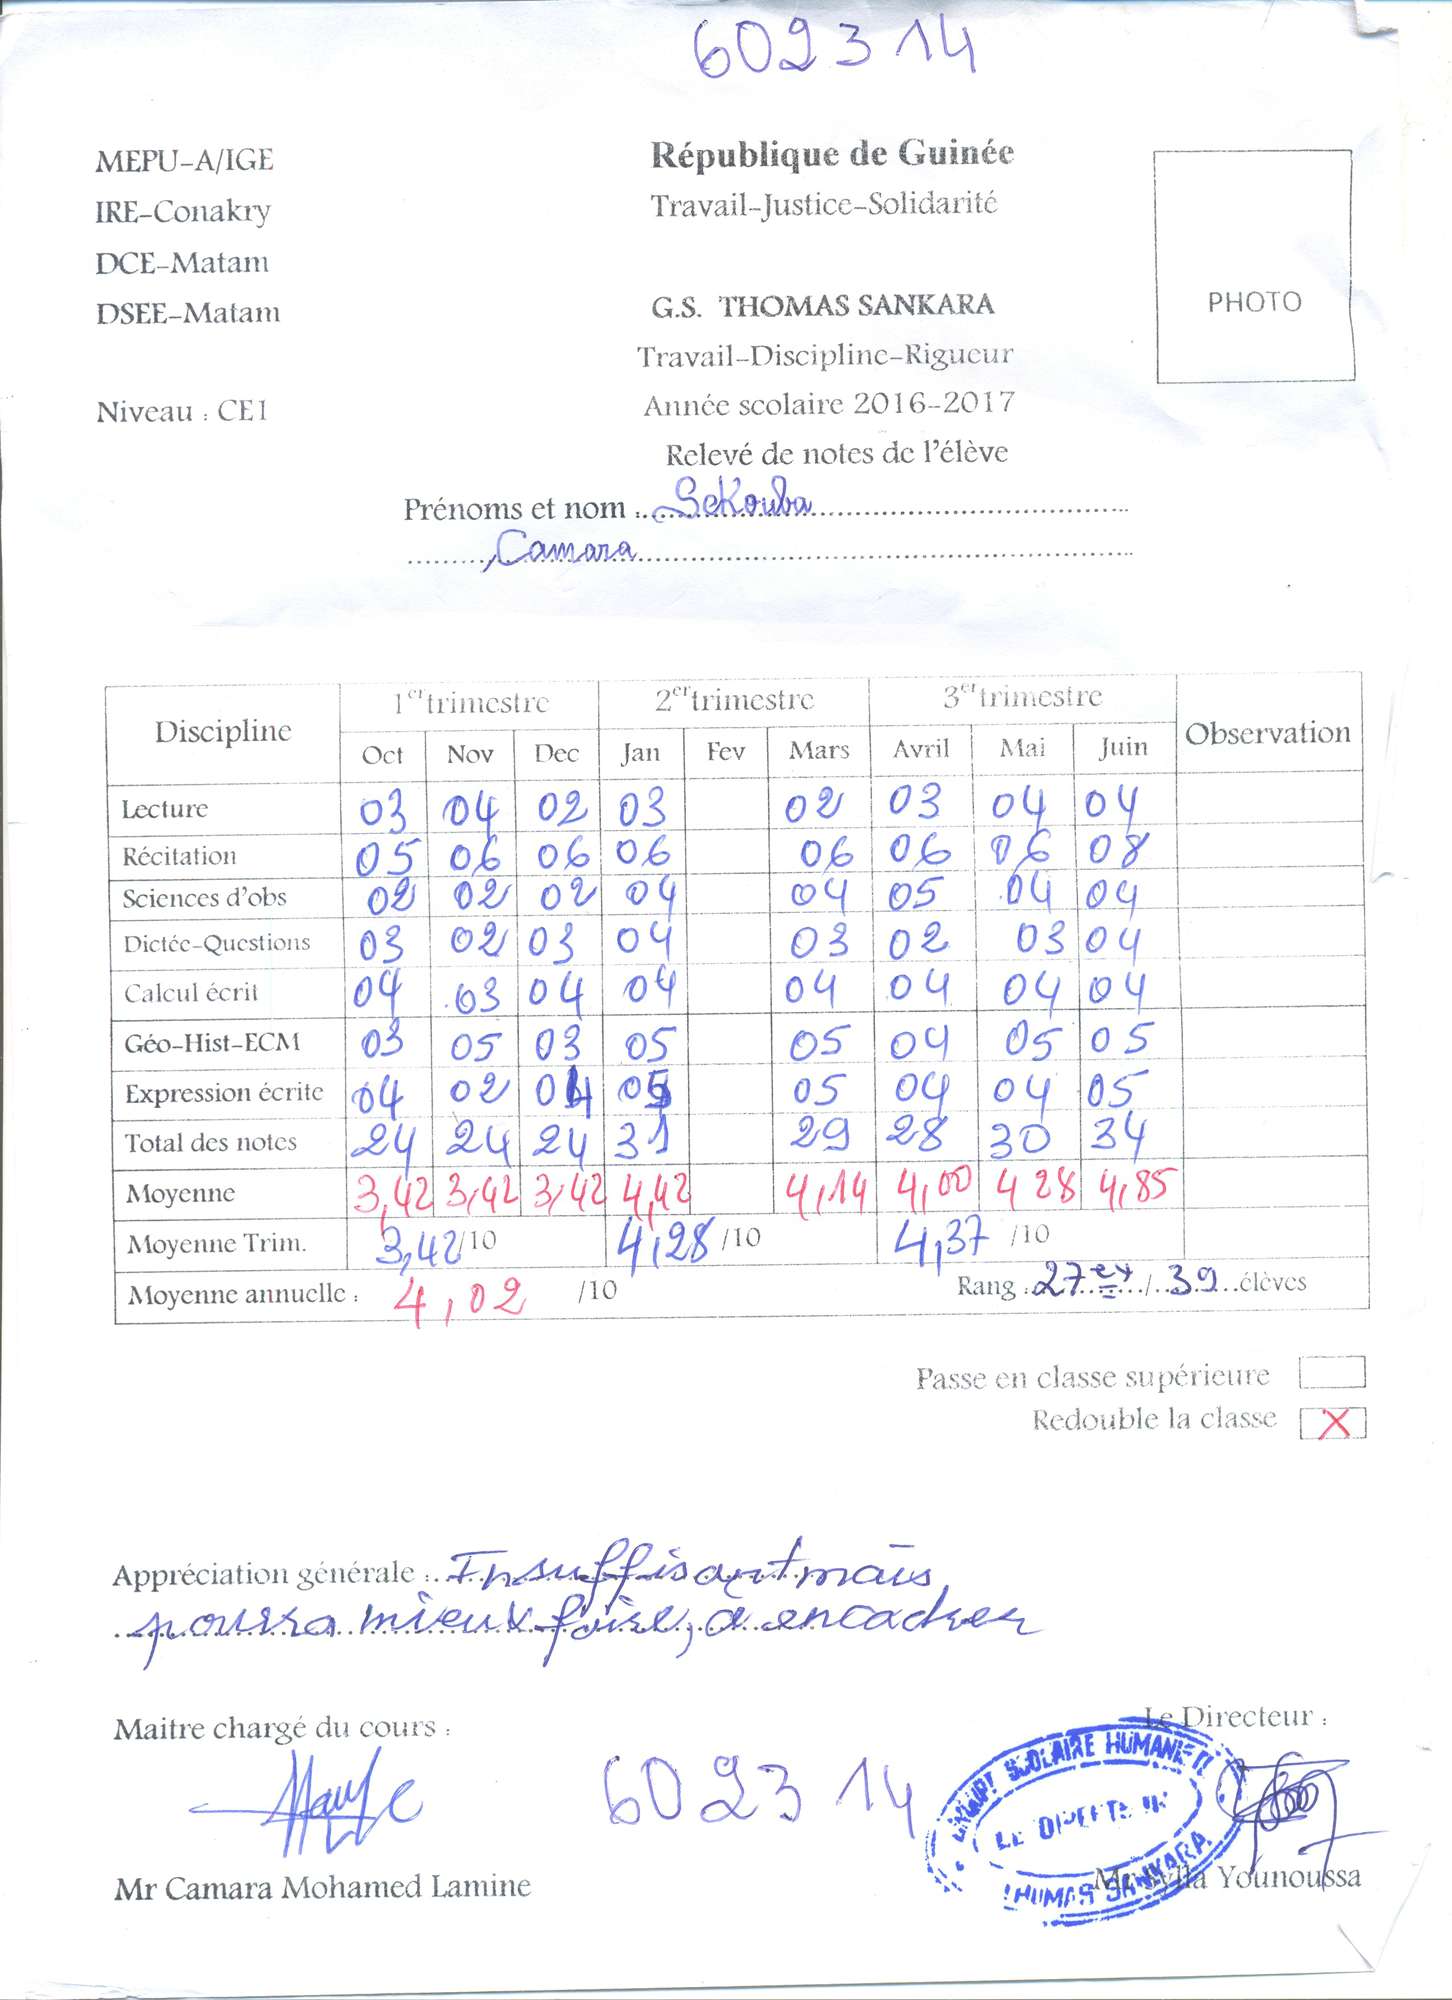 602314
MEPU-A/IGE
République de Guinée
IRE-Conakry
Travail-Justice-Solidarité
DCE-Matam
DSEE-Matam
G.S. THOMAS SANKARA
PHOTO
Travail-Discipline-Rigueur
Niveau : CE1
Année scolaire 2016-2017
Relevé de notes de l'élève
Prénoms et nom : Sekouba
Camara
Discipline 1er trimestre 2er trimestre 3er trimestre Observation
Oct Nov Dec Jan Fev Mars Avril Mai Juin
Lecture 03 04 02 03 02 03 04 04
Récitation 05 06 06 06 06 06 06 08
Sciences d'obs 02 02 02 04 04 05 04 04
Dictée-Questions 03 02 03 04 03 02 03 04
Calcul écrit 04 03 04 04 04 04 04 04
Géo-Hist-ECM 03 05 03 05 05 04 05 05
Expression écrite 04 02 04 05 05 04 04 05
Total des notes 24 24 24 31 29 28 30 34
Moyenne 3,42 3,42 3,42 4,42 4,14 4,00 4 28 4,85
Moyenne Trim. 3,42/10 4,28/10 4,37 /10
Moyenne annuelle : 4,02 /10 Rang : 27ex / 39 élèves
Passe en classe supérieure
Redouble la classe X
Appréciation générale : Insuffisant mais
pourra mieux faire, à encadrer
Maitre chargé du cours :
Le Directeur :
602314
SCOLAIRE HUMANIS
LE DIRECTEUR
THOMAS SANKARA
Mr Camara Mohamed Lamine
Mr Sylla Younoussa